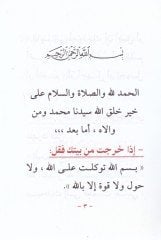 بسم الله الرحمن الرحيم
الحمد لله والصلاة والسلام على
خير خلق الله سيدنا محمد ومن
والاه ، أما بعد ،،،
– إذا خرجت من بيتك فقل :
« بسم الله توكلت على الله ، ولا
حول ولا قوة إلا بالله » .
– ٣ –